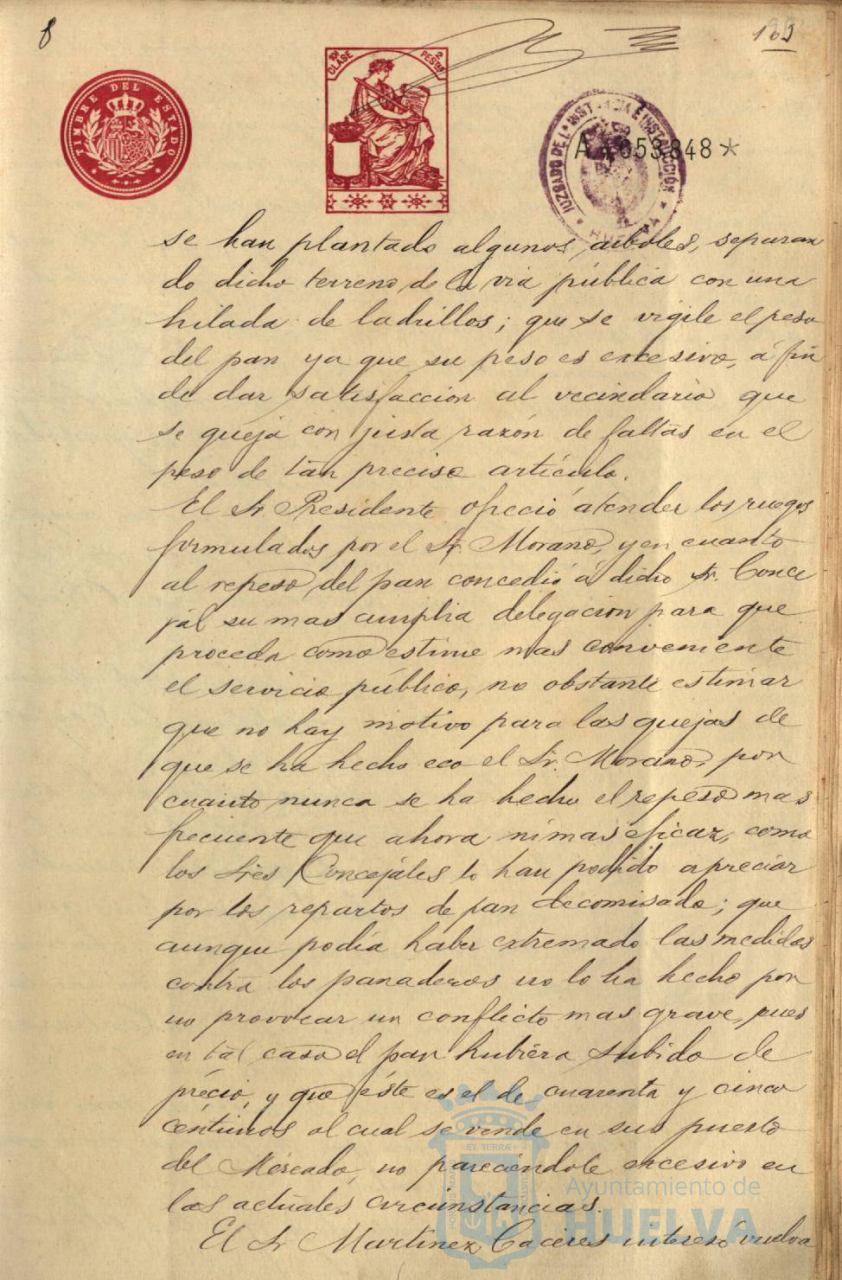 8
TIMBRE DEL ESTADO
CLASE
2 PESETAS
JUZGADO DE 1ª INSTANCIA E INSTRUCCIÓN
HUELVA
A 4053848*
se han plantado algunos árboles, separan
do dicho terreno de la via pública con una
hilada de ladrillos; que se vigile el peso
del pan ya que su peso es excesivo, á fin
de dar satisfacción al vecindario que
se queja con justa razón de faltas en el
peso de tan preciso artículo.
El Sr Presidente ofreció atender los ruegos
formulados por el Sr. Morano, y en cuanto
al repeso del pan concedió á dicho Sr. Conce
jal su mas amplia delegación para que
proceda como estime mas conveniente
el servicio público, no obstante estimar
que no hay motivo para las quejas de
que se ha hecho eco el Sr. Morano, por
cuanto nunca se ha hecho el repeso mas
frecuente que ahora ni mas eficaz, como
los Sres Concejáles lo han podido apreciar
por los repartos de pan decomisado; que
aunque podia haber extremado las medidas
contra los panaderos no lo ha hecho por
no provocar un conflicto mas grave, pues
en tal caso el pan hubiera subido de
précio, y que éste es el de cuarenta y cinco
céntimos al cual se vende en sus puesto
del Mercado, no pareciéndole excesivo en
las actuales circunstancias.
El Sr Martinez Caceres interesó vuelva
Ayuntamiento de
HUELVA